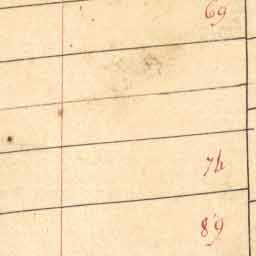 69
74
89